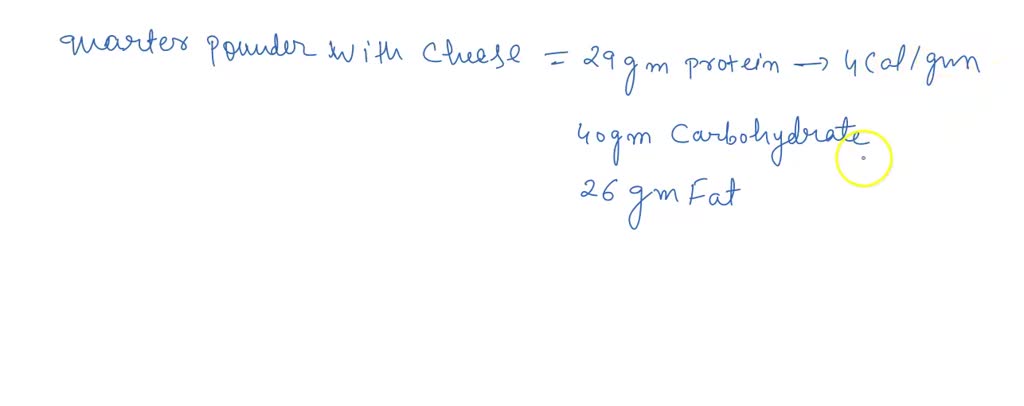 quarter pounder with Cheese = 29gm protein → 4Cal/gm
40gm Carbohydrate
26 gm Fat